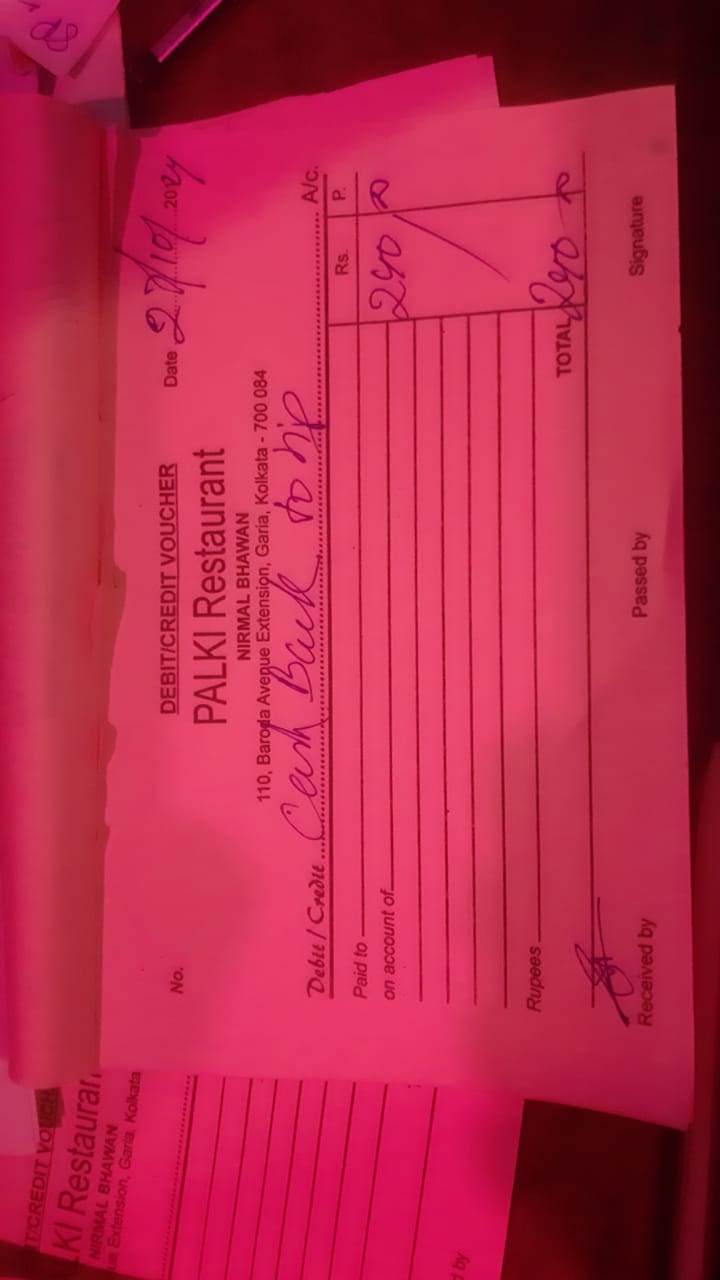 DEBIT/CREDIT VOUCHER
No.
Date 27/10/2024
PALKI Restaurant
NIRMAL BHAWAN
110, Baroda Avenue Extension, Garia, Kolkata - 700 084
Debit / Credit Cash Back to A/c.
Rs. P.
Paid to
on account of 240/
Rupees
TOTAL 240
Received by Passed by Signature
T/CREDIT VOUCH
KI Restauran
NIRMAL BHAWAN
ue Extension, Garia, Kolkata
d by